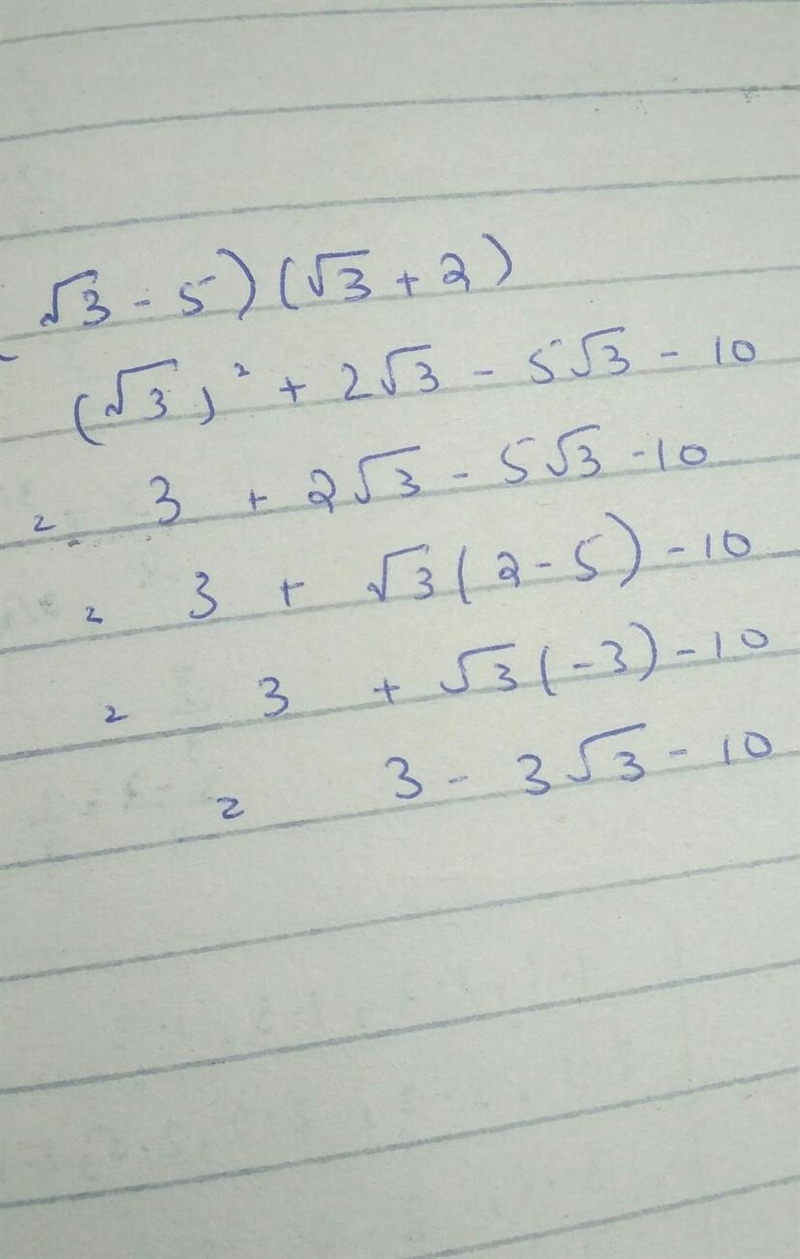 √3 - 5) (√3 + 2)
(√3)² + 2√3 - 5√3 - 10
= 3 + 2√3 - 5√3 - 10
= 3 + √3 (2 - 5) - 10
= 3 + √3 (-3) - 10
= 3 - 3√3 - 10